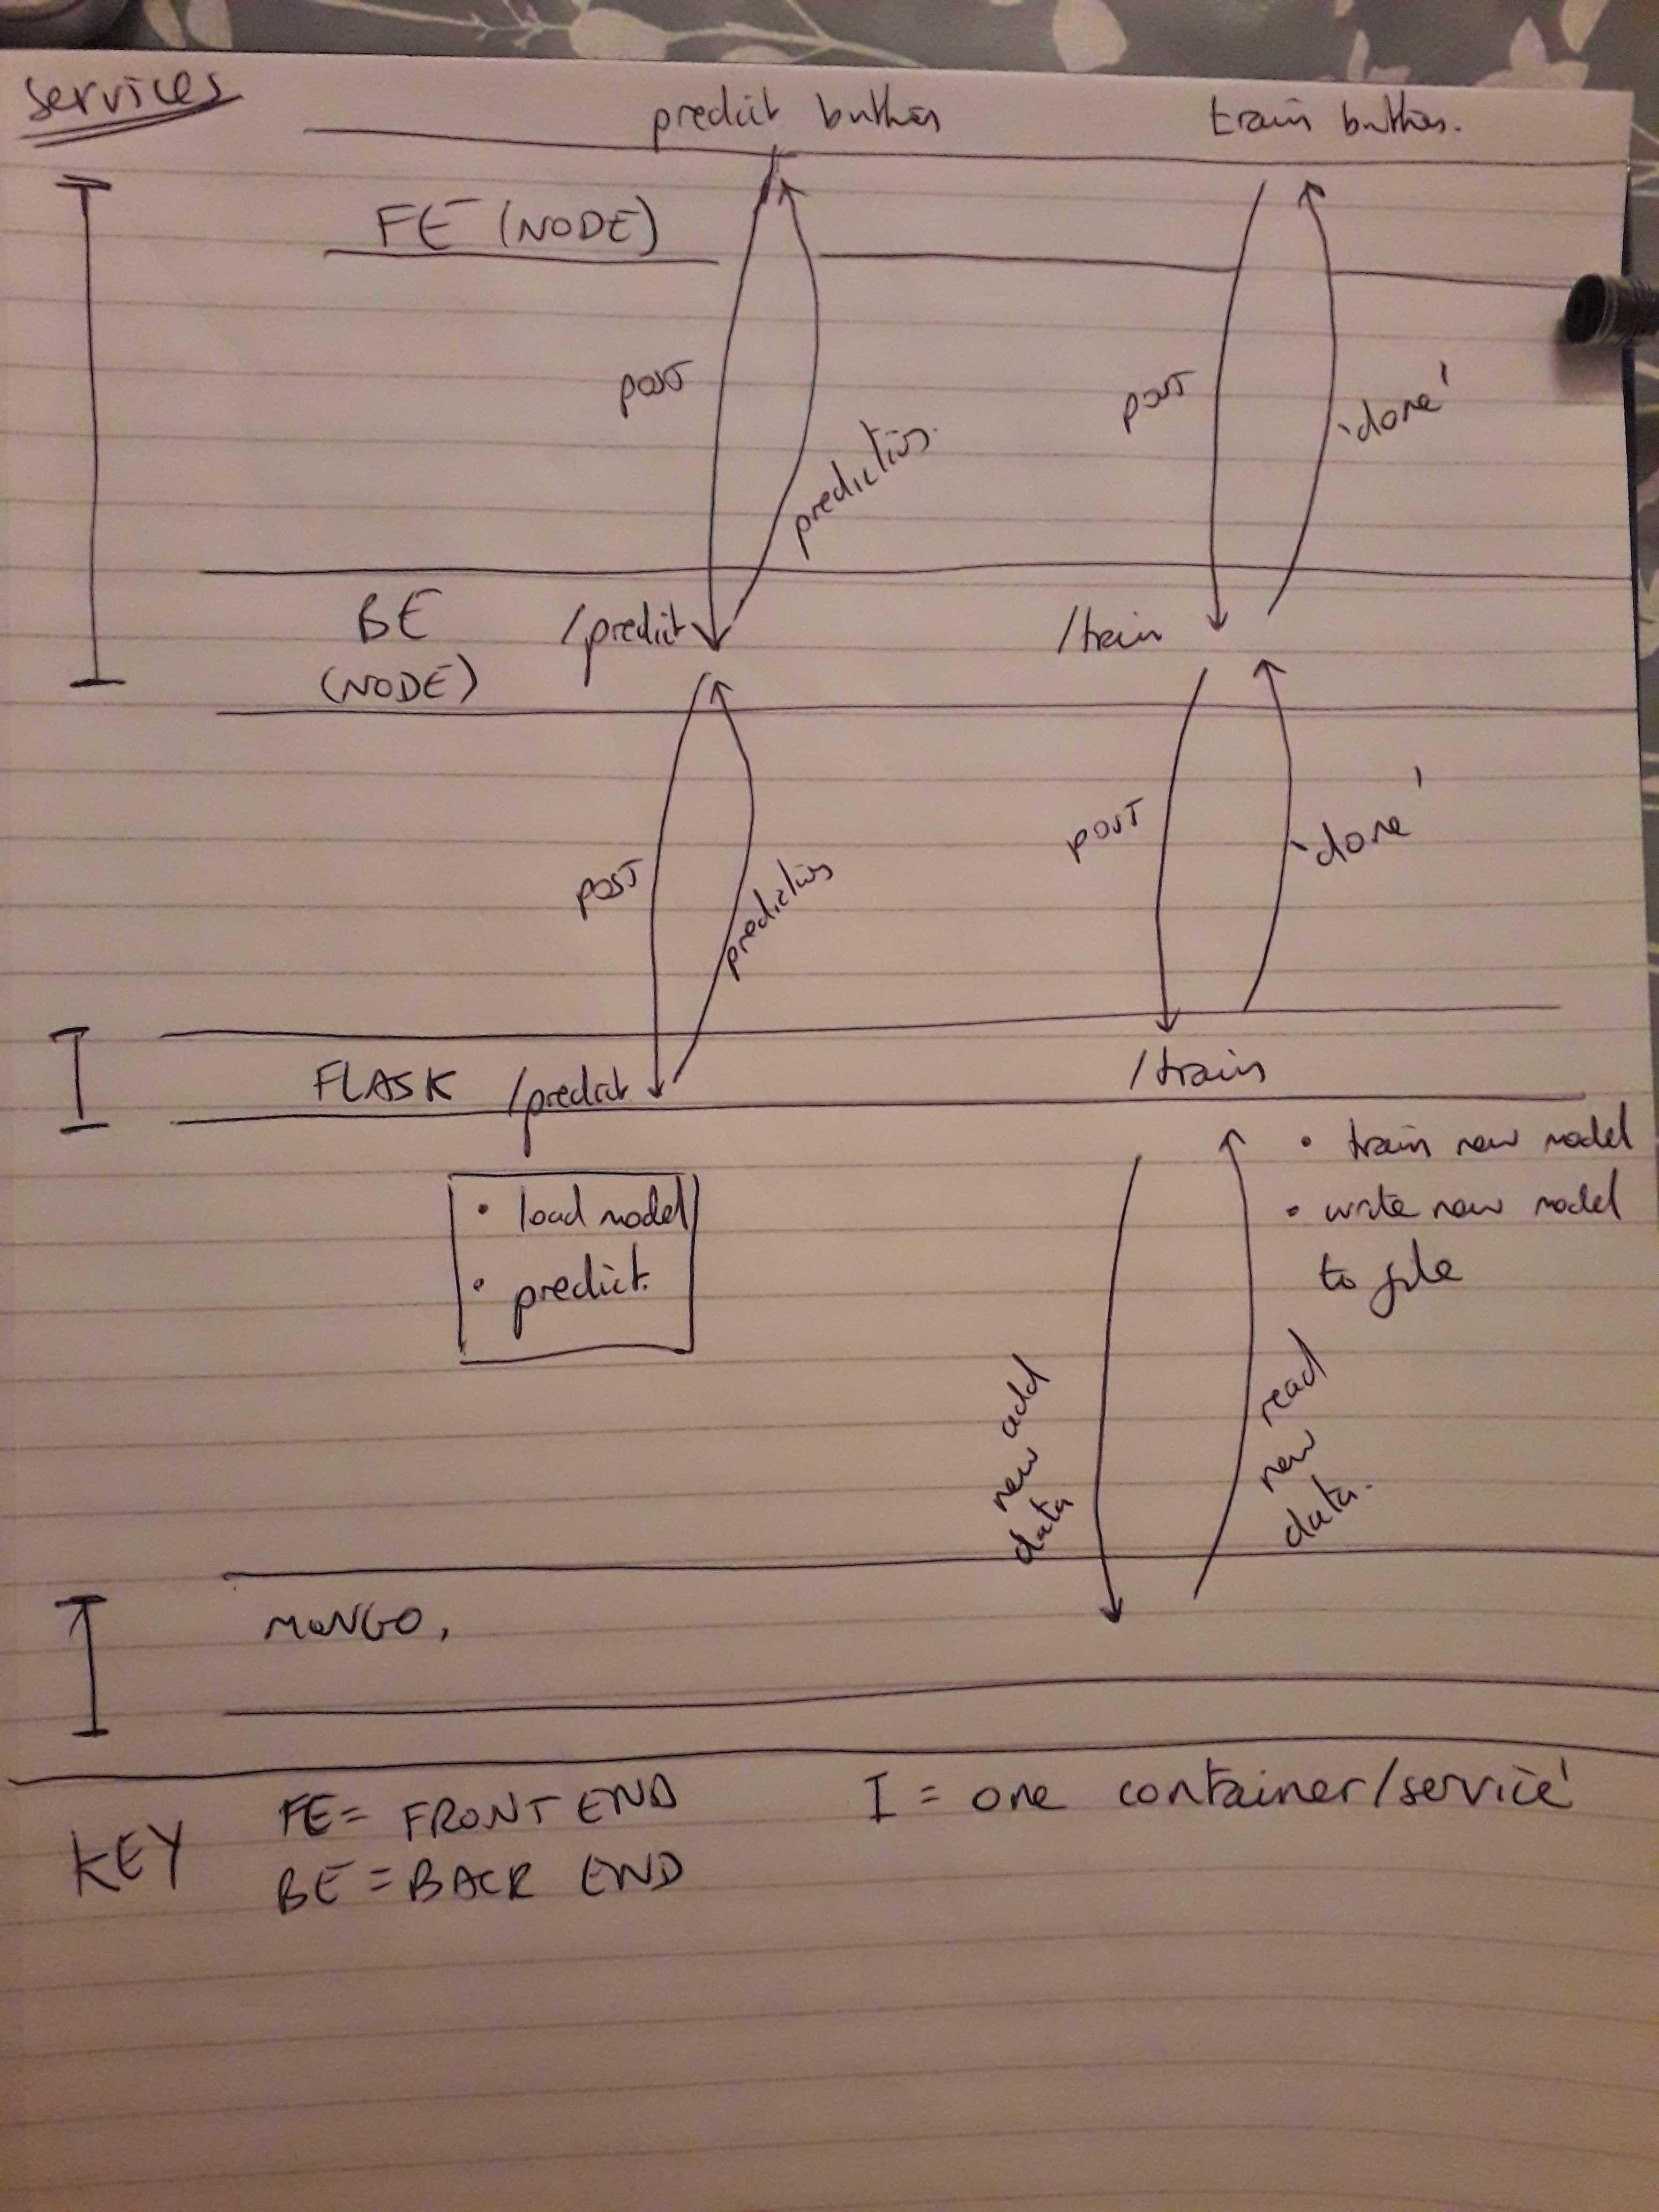 services
predict button
train button.
FE (NODE)
post
post
'done'
prediction.
BE
(NODE)
/predict
/train
post
post
'done'
prediction
FLASK
/predict
/train
• load model
• predict.
• train new model
• write new model
to file
new add
data
read
new
data.
MONGO.
KEY
FE = FRONT END
BE = BACK END
I = one container/service'